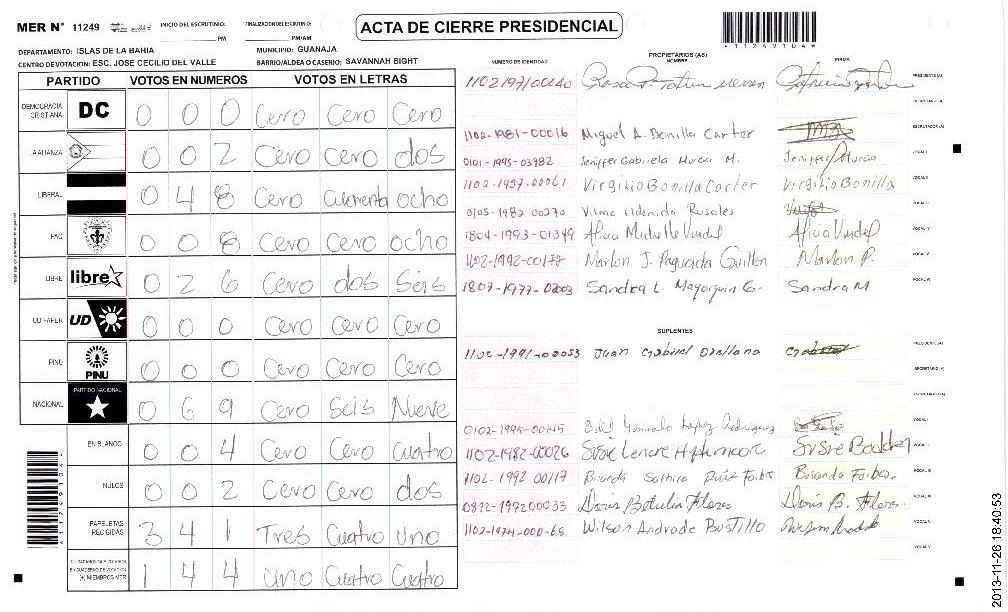 MER N° 11249 INICIO DEL ESCRUTINIO: PM FINALIZACION DEL ESCRUTINIO: PM/AM
ACTA DE CIERRE PRESIDENCIAL
A11249104A
DEPARTAMENTO: ISLAS DE LA BAHIA MUNICIPIO: GUANAJA
CENTRO DE VOTACION: ESC. JOSE CECILIO DEL VALLE BARRIO/ALDEA O CASERIO: SAVANNAH BIGHT
PARTIDO VOTOS EN NUMEROS VOTOS EN LETRAS
DEMOCRACIA CRISTIANA DC 0 0 0 Cero Cero Cero
ALIANZA 0 0 2 Cero Cero dos
LIBERAL 0 4 8 Cero Cuarenta ocho
PAC 0 0 8 Cero Cero ocho
LIBRE libre 0 2 6 Cero dos Seis
UD FAPER UD 0 0 0 Cero Cero Cero
PINU PINU 0 0 0 Cero Cero Cero
NACIONAL PARTIDO NACIONAL 0 6 9 Cero Seis Nueve
EN BLANCO 0 0 4 Cero Cero Cuatro
NULOS 0 0 2 Cero Cero dos
PAPELETAS RECIBIDAS 3 4 1 Tres Cuatro uno
CIUDADANOS QUE VOTARON EN CUADERNO DE VOTACION (+) MIEMBROS MER 1 4 4 uno Cuatro Cuatro
PROPIETARIOS (AS)
NUMERO DE IDENTIDAD NOMBRE FIRMA
1102197100040 PRESIDENTE(A)
SECRETARIO(A)
1102-1981-00016 Miguel A. Bonilla Carter ESCRUTADOR(A)
0101-1995-03982 Jeniffer Gabriela Murcia M. Jeniffer Murcia VOCAL I
1102-1957-00061 Virgilio Bonilla Carter Virgilio Bonilla VOCAL II
0105-1982 00270 Vilma Rosales VOCAL III
1804-1993-01349 Alicia Michelle VOCAL IV
1102-1992-00178 Marlon J. Paguada Guillen Marlon P. VOCAL V
1807-1977-0203 Sandra L. Mayorquin G. Sandra M VOCAL VI
SUPLENTES
1102-1991-00053 Juan Gabriel Orellana PRESIDENTE(A)
SECRETARIO(A)
ESCRUTADOR(A)
0102-1995-00145 Lopez Rodriguez VOCAL I
1102-1982-00026 Susie Bodden VOCAL II
1102-1992 00117 Brianda Forbes VOCAL III
0812-197200033 Doris Flores Doris B. Flores VOCAL IV
1102-1974-000-65 Wilson Andrade Bustillo VOCAL V
VOCAL VI
A11249104A
2013-11-26 18:40:53